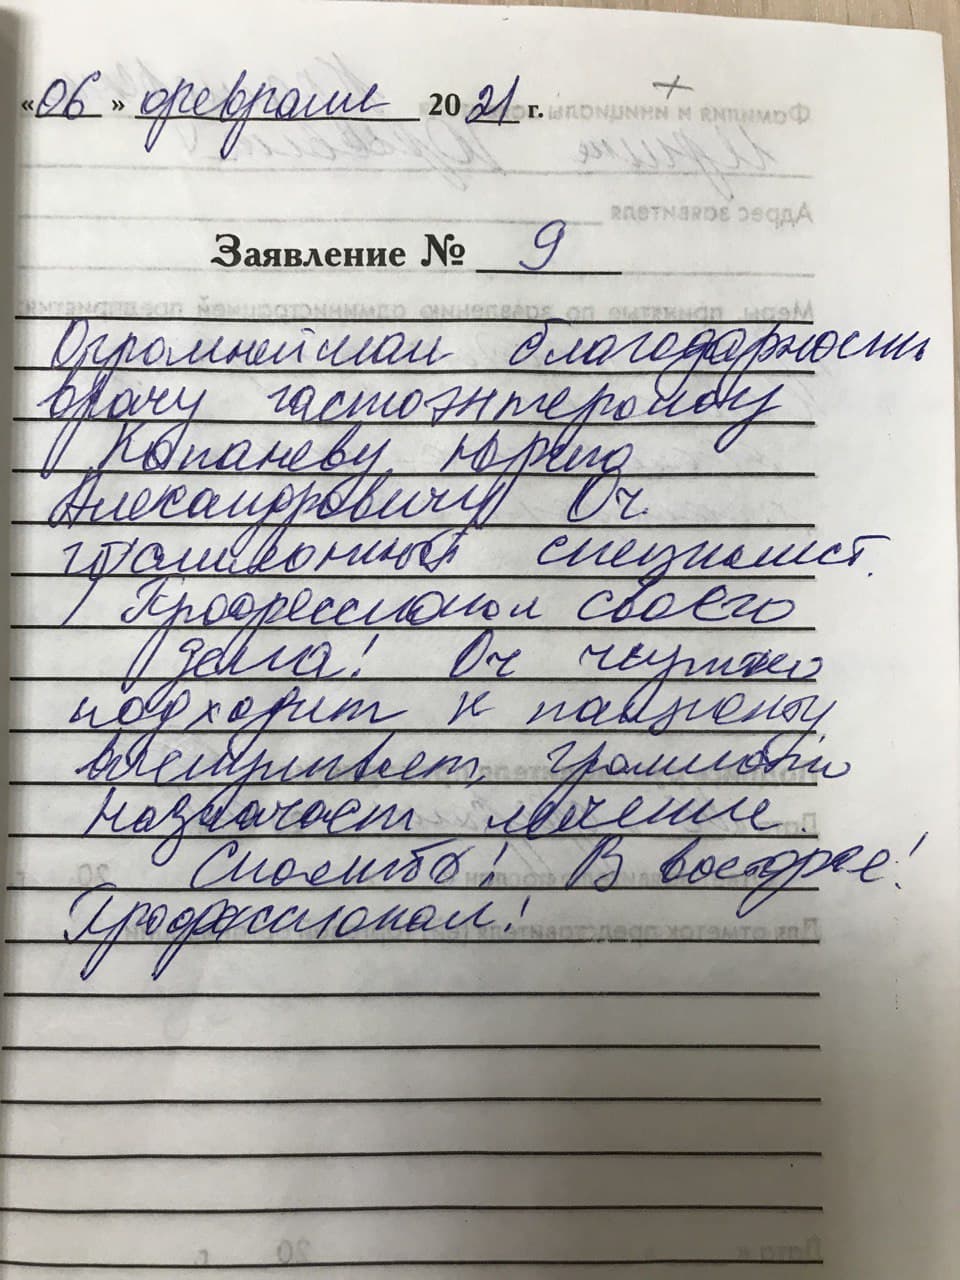 «06» февраля 2021 г.
Заявление № 9
Огромнейшая благодарность
врачу гастоэнтерологу
Копаневу Юрию
Александровичу Оч.
грамотный специалист.
Профессионал своего
дела! Оч чутко
подходит к пациенту
выслушивает, грамотно
назначает лечение.
Спасибо! В восторге!
Профессионал!